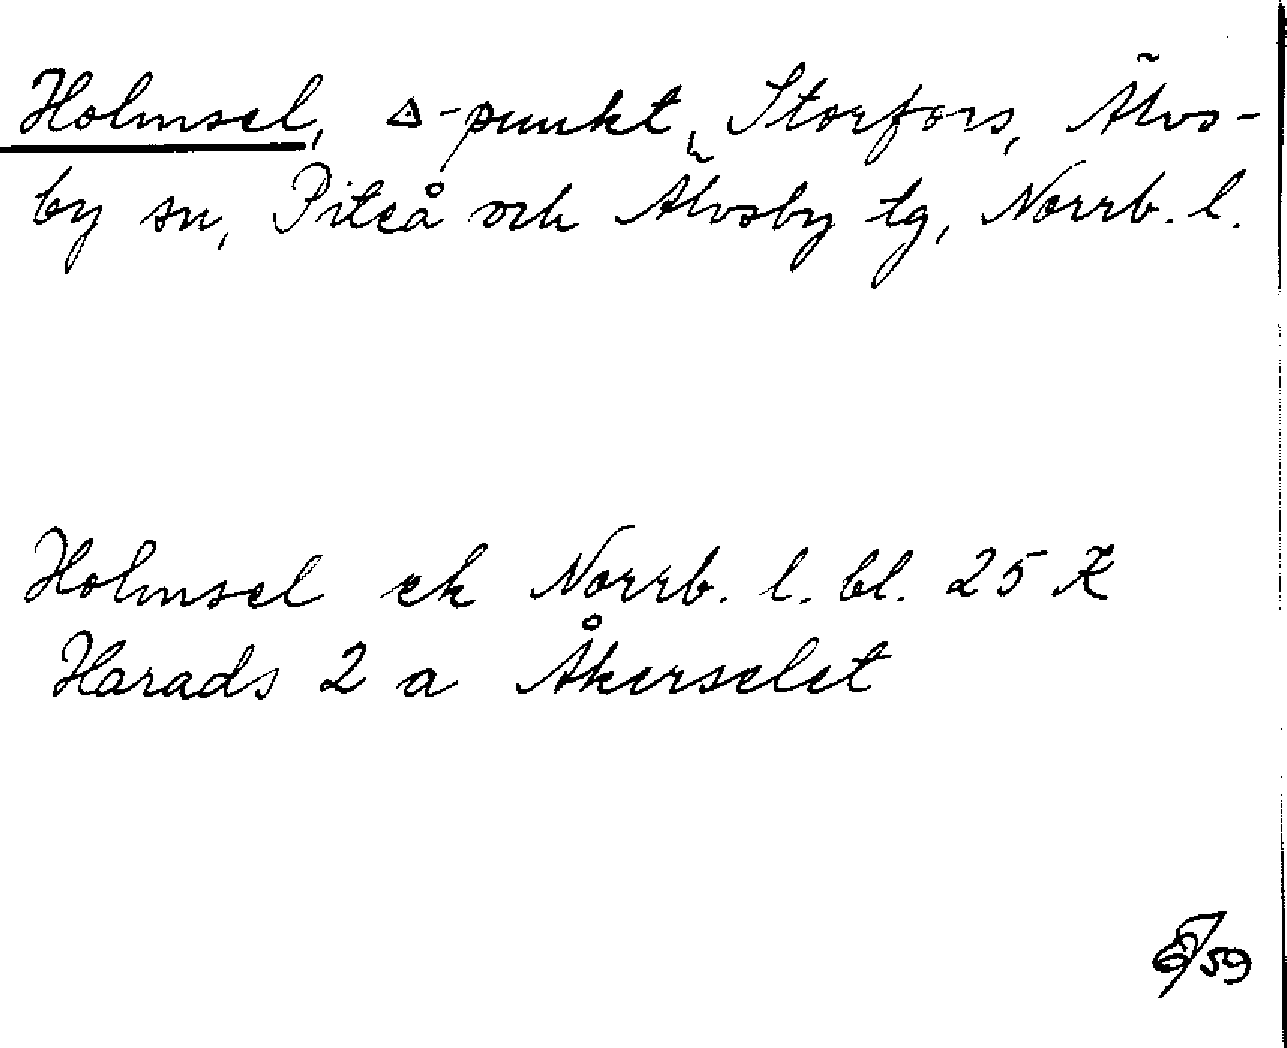 Holmsel, △-punkt, Storfors, Älvs-
by sn, Piteå och Älvsby tg, Norrb. l.
Holmsel ek Norrb. l. bl. 25 K
Harads 2 a Åkerselet